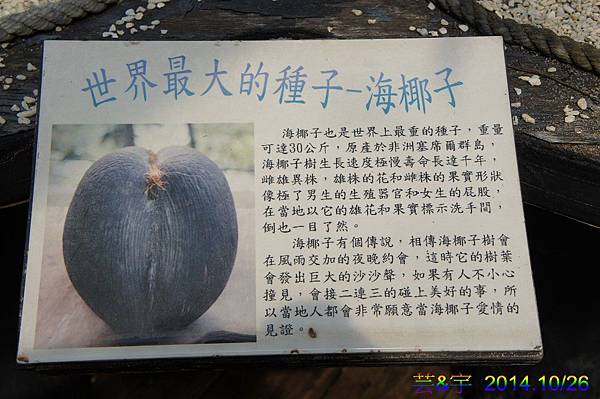 世界最大的種子-海椰子
海椰子也是世界上最重的種子，重量
可達30公斤，原產於非洲塞席爾群島，
海椰子樹生長速度極慢壽命長達千年，
雌雄異株，雄株的花和雌株的果實形狀
像極了男生的生殖器官和女生的屁股，
在當地以它的雄花和果實標示洗手間，
倒也一目了然。
海椰子有個傳說，相傳海椰子樹會
在風雨交加的夜晚約會，這時它的樹葉
會發出巨大的沙沙聲，如果有人不小心
撞見，會接二連三的碰上美好的事，所
以當地人都會非常願意當海椰子愛情的
見證。
芸&宇 2014.10/26